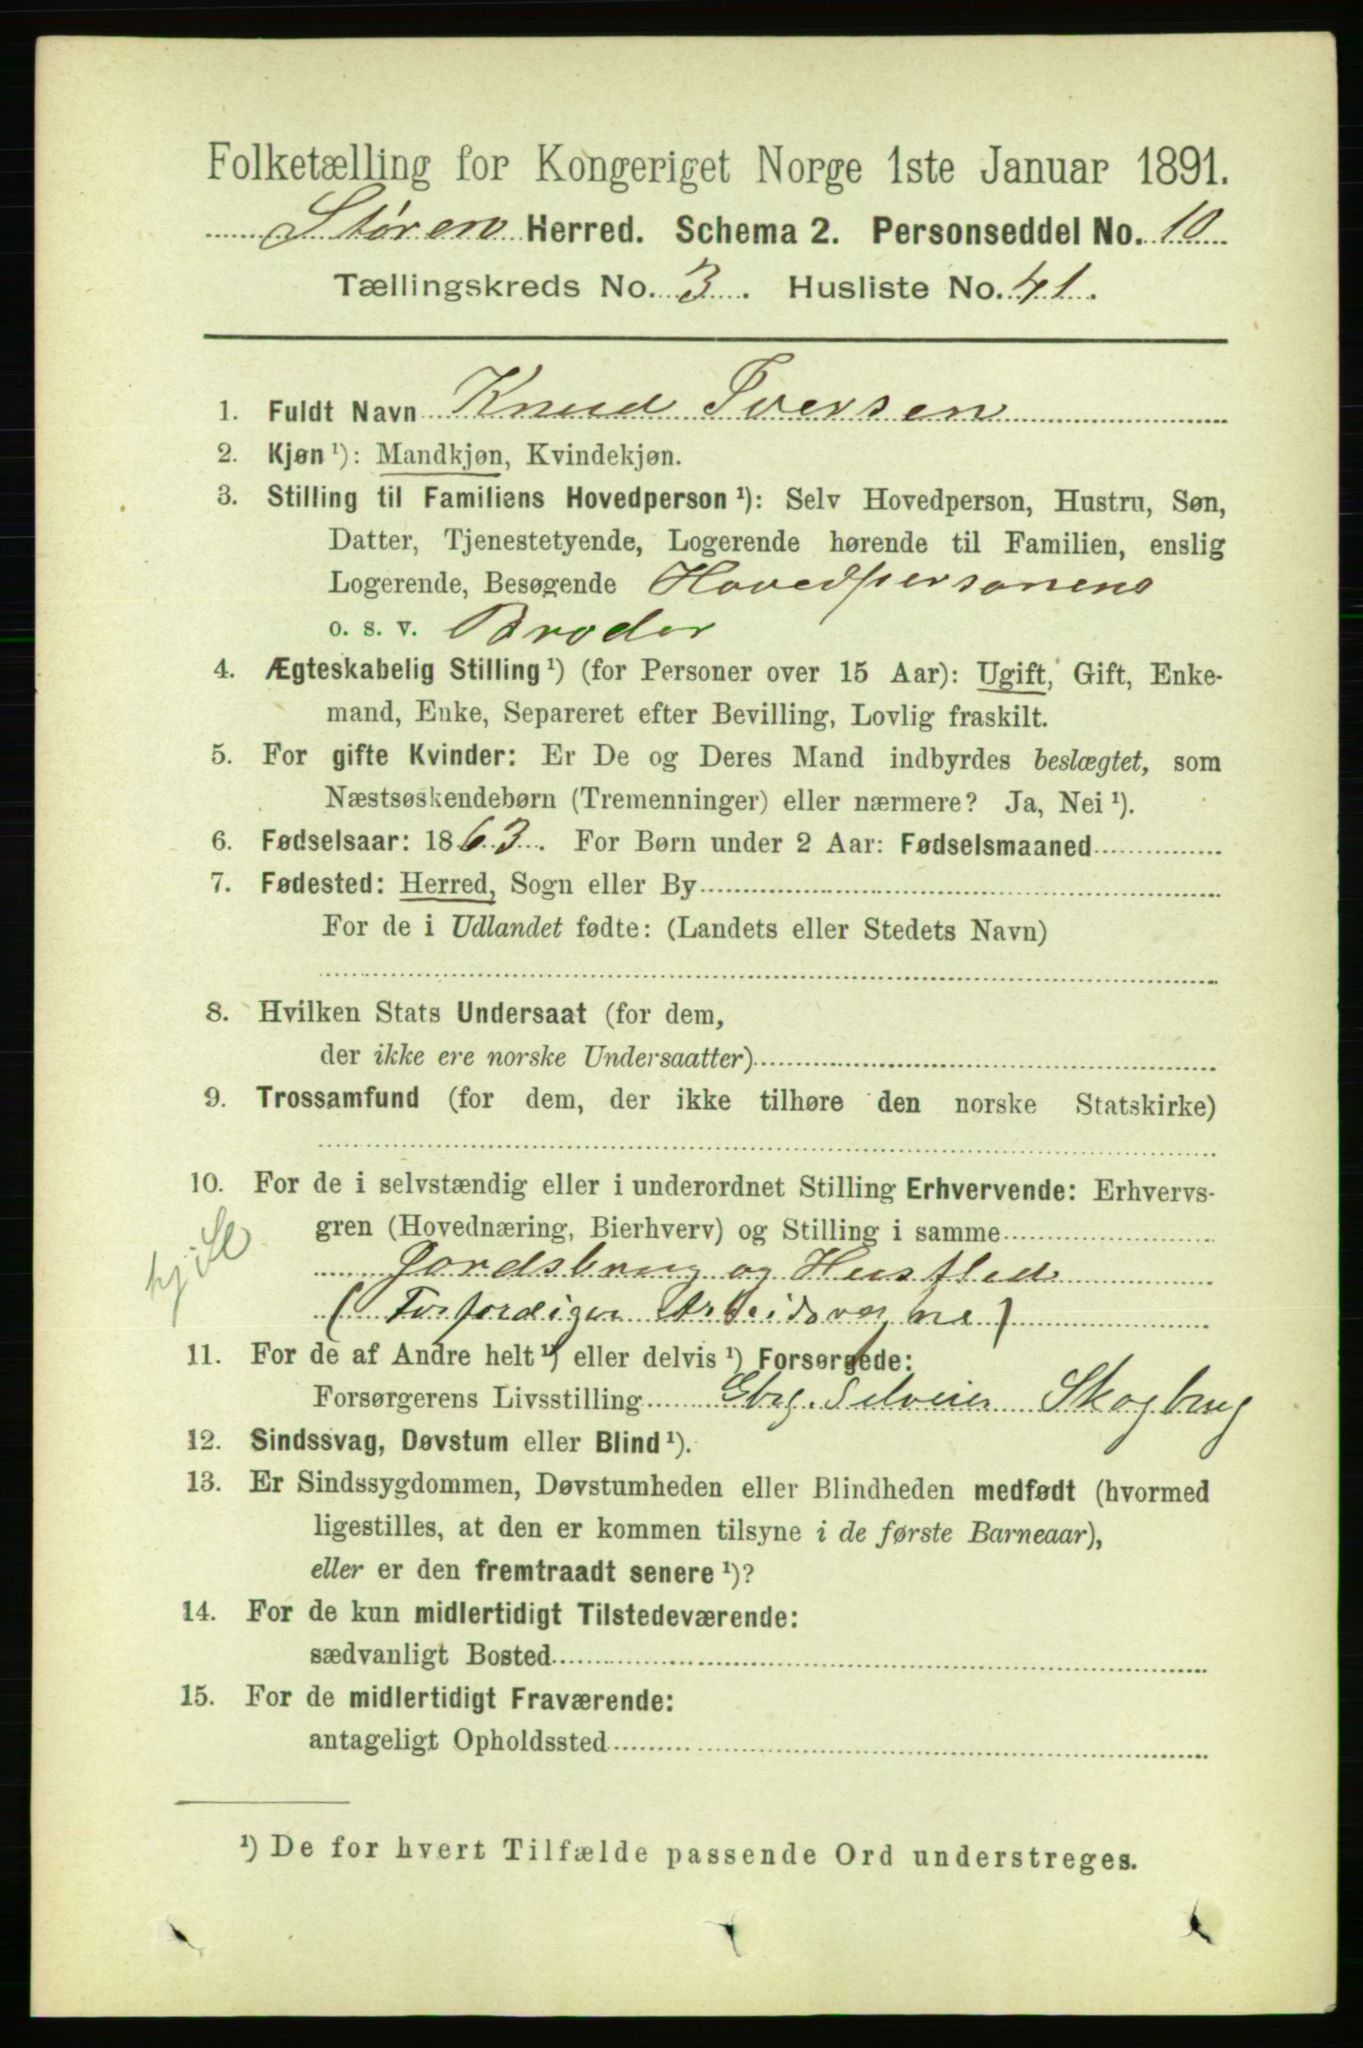 Folketælling for Kongeriget Norge 1ste Januar 1891.
Støren Herred. Schema 2. Personseddel No. 10
Tællingskreds No. 3. Husliste No. 41.
1. Fuldt Navn Knud Iversen
2. Kjøn ¹): Mandkjøn, Kvindekjøn.
3. Stilling til Familiens Hovedperson ¹): Selv Hovedperson, Hustru, Søn,
Datter, Tjenestetyende, Logerende hørende til Familien, enslig
Logerende, Besøgende Hovedpersonens
o. s. v. Broder
4. Ægteskabelig Stilling ¹) (for Personer over 15 Aar): Ugift, Gift, Enke-
mand, Enke, Separeret efter Bevilling, Lovlig fraskilt.
5. For gifte Kvinder: Er De og Deres Mand indbyrdes beslægtet, som
Næstsøskendebørn (Tremenninger) eller nærmere? Ja, Nei ¹).
6. Fødselsaar: 1863. For Børn under 2 Aar: Fødselsmaaned
7. Fødested: Herred, Sogn eller By
For de i Udlandet fødte: (Landets eller Stedets Navn)
8. Hvilken Stats Undersaat (for dem,
der ikke ere norske Undersaatter)
9. Trossamfund (for dem, der ikke tilhøre den norske Statskirke)
10. For de i selvstændig eller i underordnet Stilling Erhvervende: Erhvervs-
gren (Hovednæring, Bierhverv) og Stilling i samme
Jordsbrug og Husflid
(Forfærdiger Arbeidsvogne)
11. For de af Andre helt ¹) eller delvis ¹) Forsørgede:
Forsørgerens Livsstilling Gbrg. Selveier Skogbrug
12. Sindssvag, Døvstum eller Blind ¹).
13. Er Sindssygdommen, Døvstumheden eller Blindheden medfødt (hvormed
ligestilles, at den er kommen tilsyne i de første Barneaar),
eller er den fremtraadt senere ¹)?
14. For de kun midlertidigt Tilstedeværende:
sædvanligt Bosted
15. For de midlertidigt Fraværende:
antageligt Opholdssted
¹) De for hvert Tilfælde passende Ord understreges.